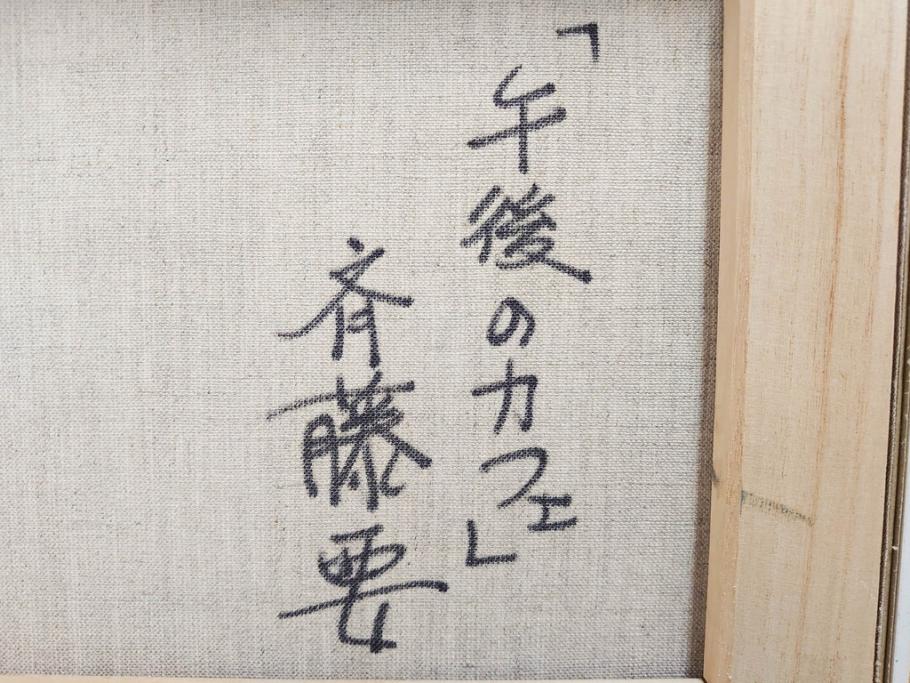 「午後のカフェ」
斉藤要